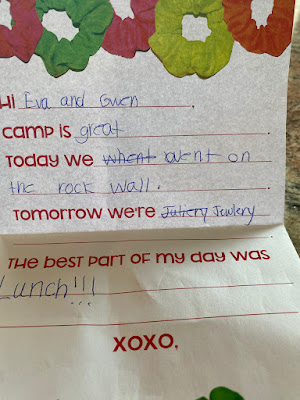 Hi Eva and Gwen.
Camp is great.
Today we whent went on
the rock wall.
Tomorrow we're Juliery Jewlery
.
The best part of my day was
Lunch!!!
XOXO,